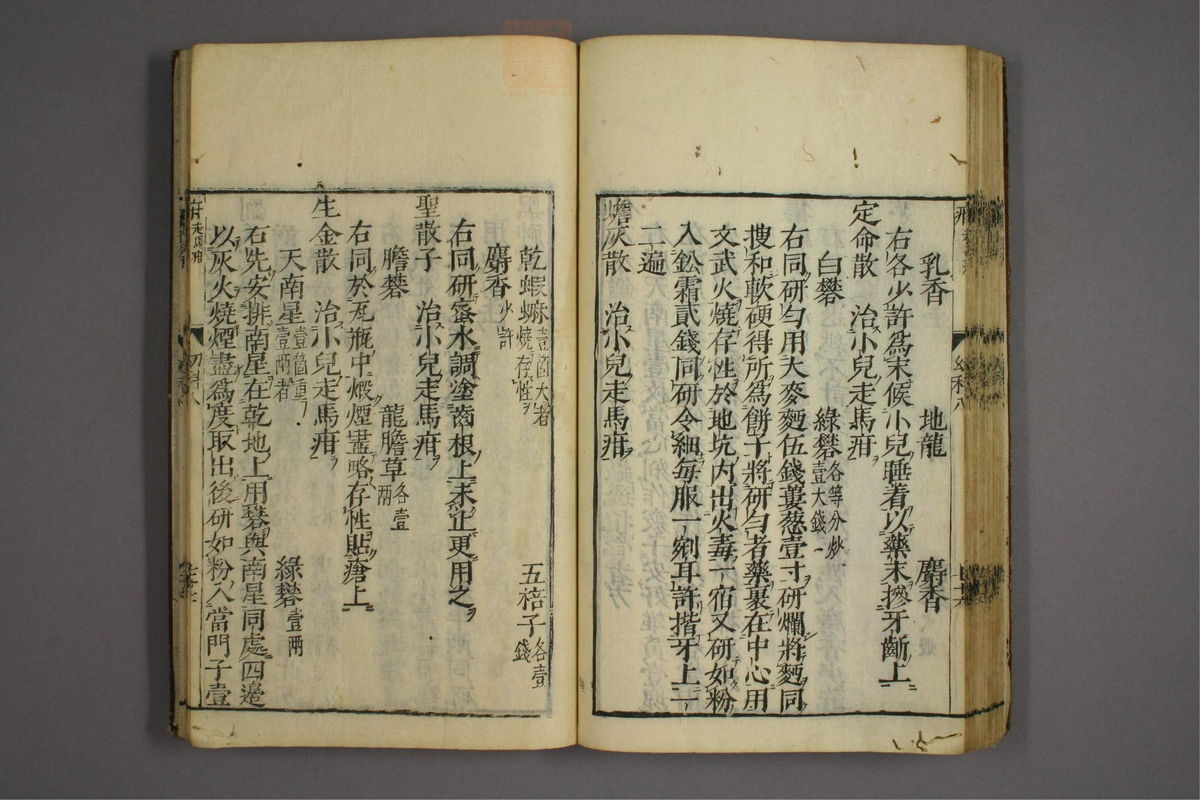 乳香　地龍　麝香
右各少許為末候小兒睡着以藥末摻牙齗上
定命散　治小兒走馬疳
白礬　綠礬各等分炒壹大錢
右同研勻用大麥麪伍錢蔞葱壹寸研爛將麪同
搜和軟硬得所為餅子將研勻者藥裹在中心用
文武火燒存性於地坑內出火毒一宿又研如粉
入鉛霜貳錢同研令細每服一剜耳許揩牙上一
二遍
蟾灰散　治小兒走馬疳
乾蝦蟆壹箇大者燒存性　五棓子各壹錢
麝香少許
右同研蜜水調塗齒根上未止更用之
聖散子　治小兒走馬疳
膽礬　龍膽草各壹兩
右同於瓦瓶中煅煙盡略存性貼瘡上
生金散　治小兒走馬疳
天南星壹箇重壹兩者　綠礬壹兩
右先安排南星在乾地上用礬與南星同處四邊
以灰火燒煙盡為度取出後研如粉入當門子壹